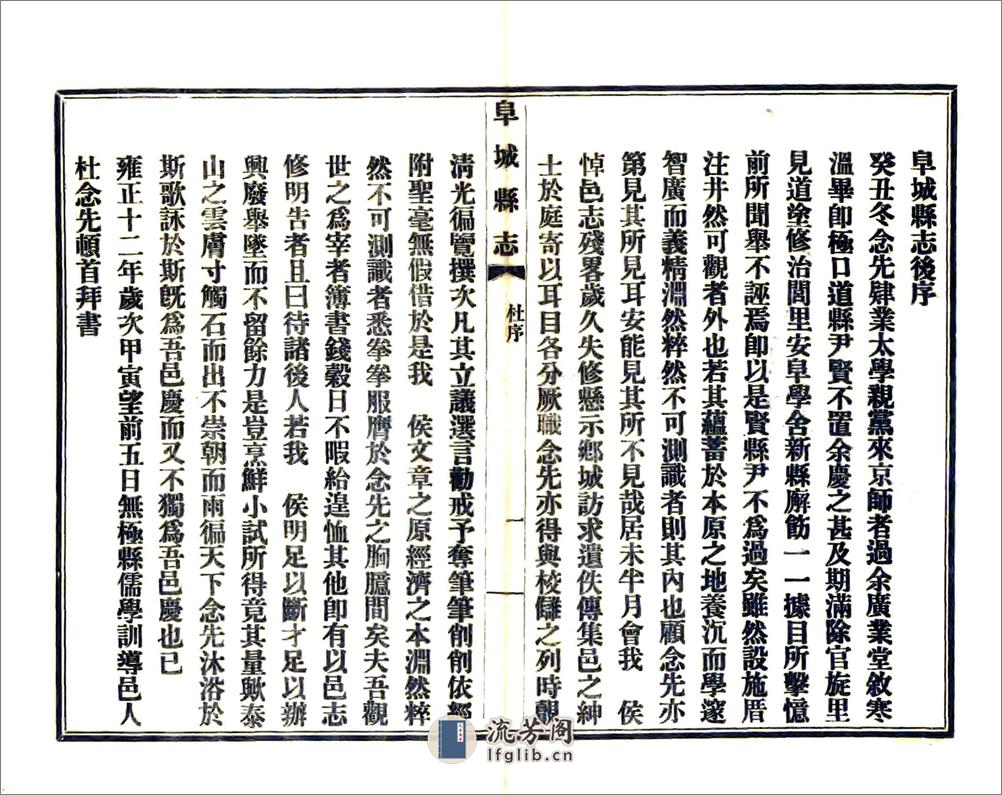 阜城縣志後序
癸丑冬念先肄業太學親黨來京師者過余廣業堂敘寒
溫畢卽極口道縣尹賢不置余慶之甚及期滿除官旋里
見道塗修治閭里安阜學舍新縣廨飭一一據目所擊憶
前所聞舉不誣焉卽以是賢縣尹不爲過矣雖然設施厝
注井然可觀者外也若其蘊蓄於本原之地養沉而學邃
智廣而義精淵然粹然不可測識者則其內也顧念先亦
第見其所見耳安能見其所不見哉居未半月會我 侯
悼邑志殘畧歲久失修懸示鄉城訪求遺佚傳集邑之紳
士於庭寄以耳目各分厥職念先亦得與校讎之列時覩
阜城縣志
杜序
一
清光徧覽撰次凡其立議選言勸戒予奪筆筆削削依經
附聖毫無假借於是我 侯文章之原經濟之本淵然粹
然不可測識者悉拳拳服膺於念先之胸臆間矣夫吾觀
世之爲宰者簿書錢穀日不暇給遑恤其他卽有以邑志
修明告者且曰待諸後人若我 侯明足以斷才足以辦
興廢舉墜而不留餘力是豈烹鮮小試所得竟其量歟泰
山之雲膚寸觸石而出不崇朝而雨徧天下念先沐浴於
斯歌詠於斯旣爲吾邑慶而又不獨爲吾邑慶也已
雍正十二年歲次甲寅望前五日無極縣儒學訓導邑人
杜念先頓首拜書
流芳阁
lfglib.cn